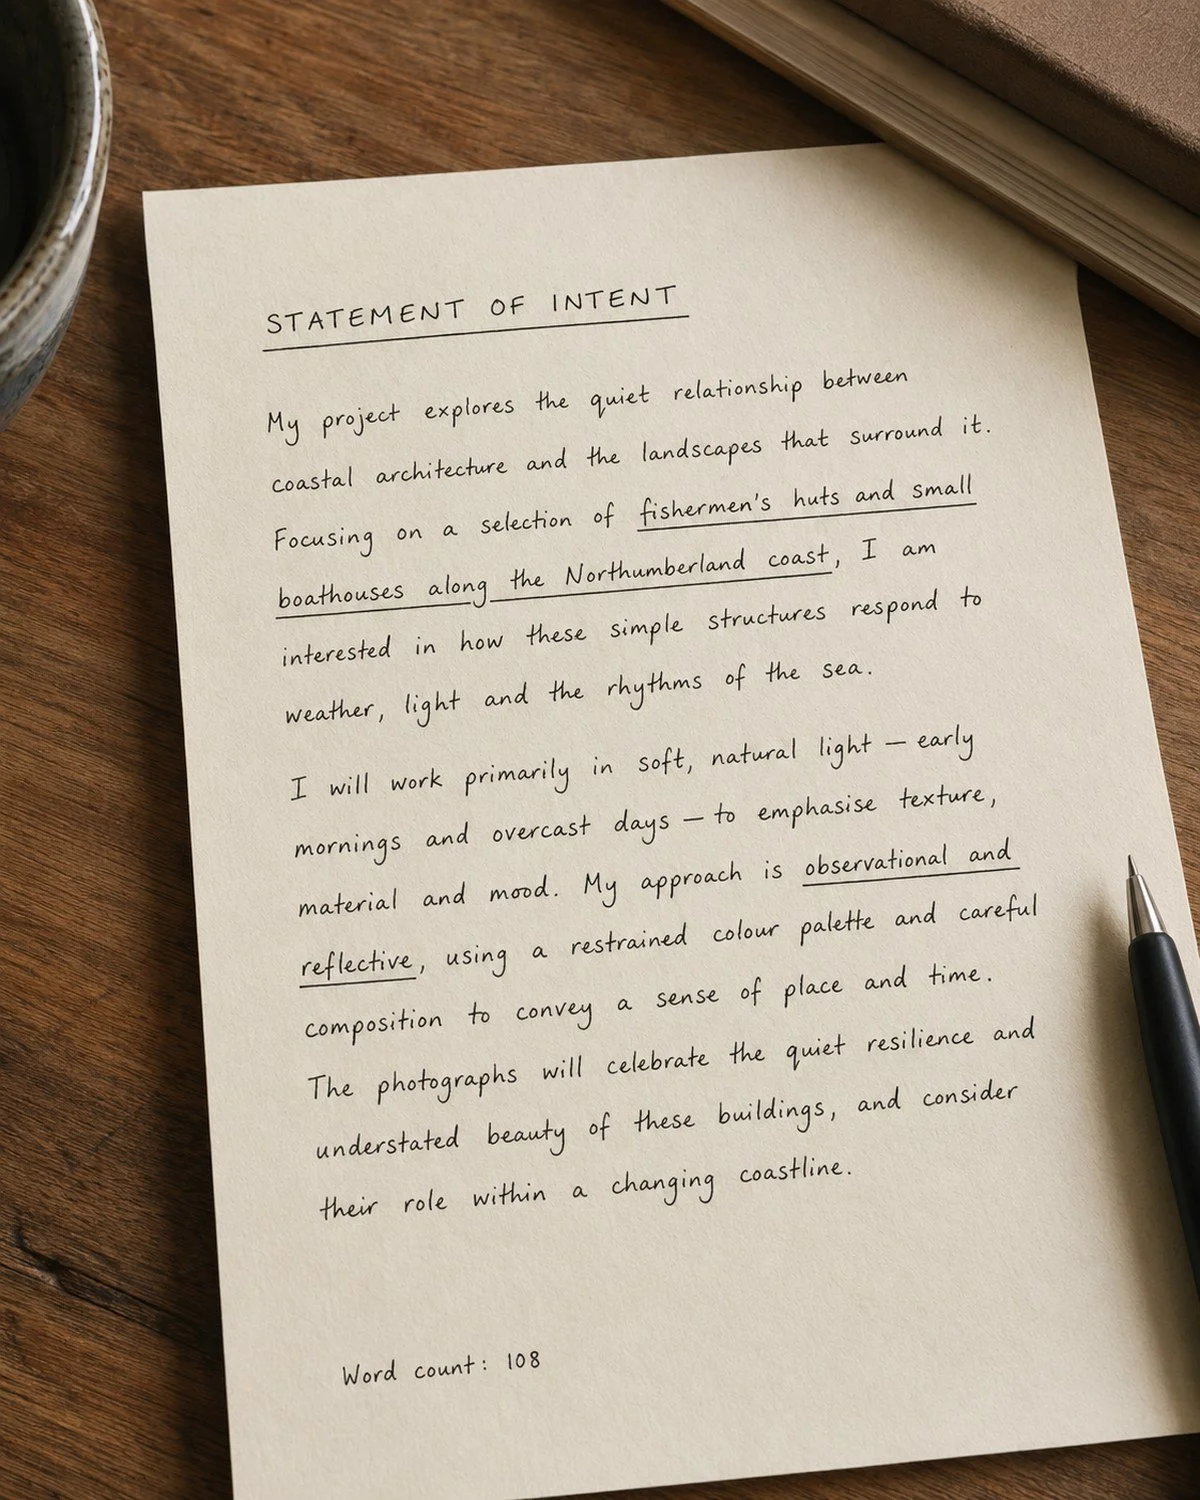 STATEMENT OF INTENT
My project explores the quiet relationship between
coastal architecture and the landscapes that surround it.
Focusing on a selection of fishermen's huts and small
boathouses along the Northumberland coast, I am
interested in how these simple structures respond to
weather, light and the rhythms of the sea.
I will work primarily in soft, natural light — early
mornings and overcast days — to emphasise texture,
material and mood. My approach is observational and
reflective, using a restrained colour palette and careful
composition to convey a sense of place and time.
The photographs will celebrate the quiet resilience and
understated beauty of these buildings, and consider
their role within a changing coastline.
Word count: 108